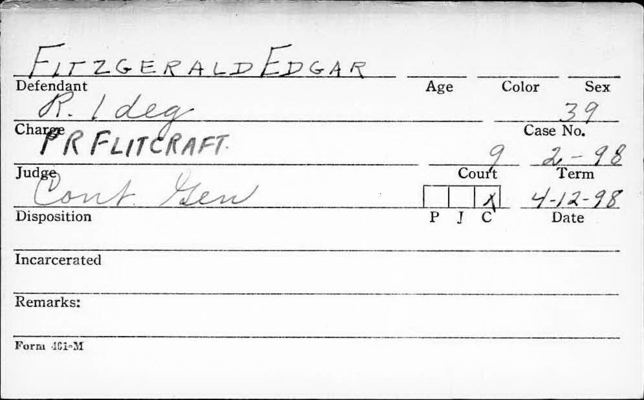 FITZGERALD EDGAR
Defendant Age Color Sex
R. 1 deg 39
Charge Case No.
P R FLITCRAFT. 9 2-98
Judge Court Term
Cont. Gen X 4-12-98
Disposition P J C Date
Incarcerated
Remarks:
Form 461-M